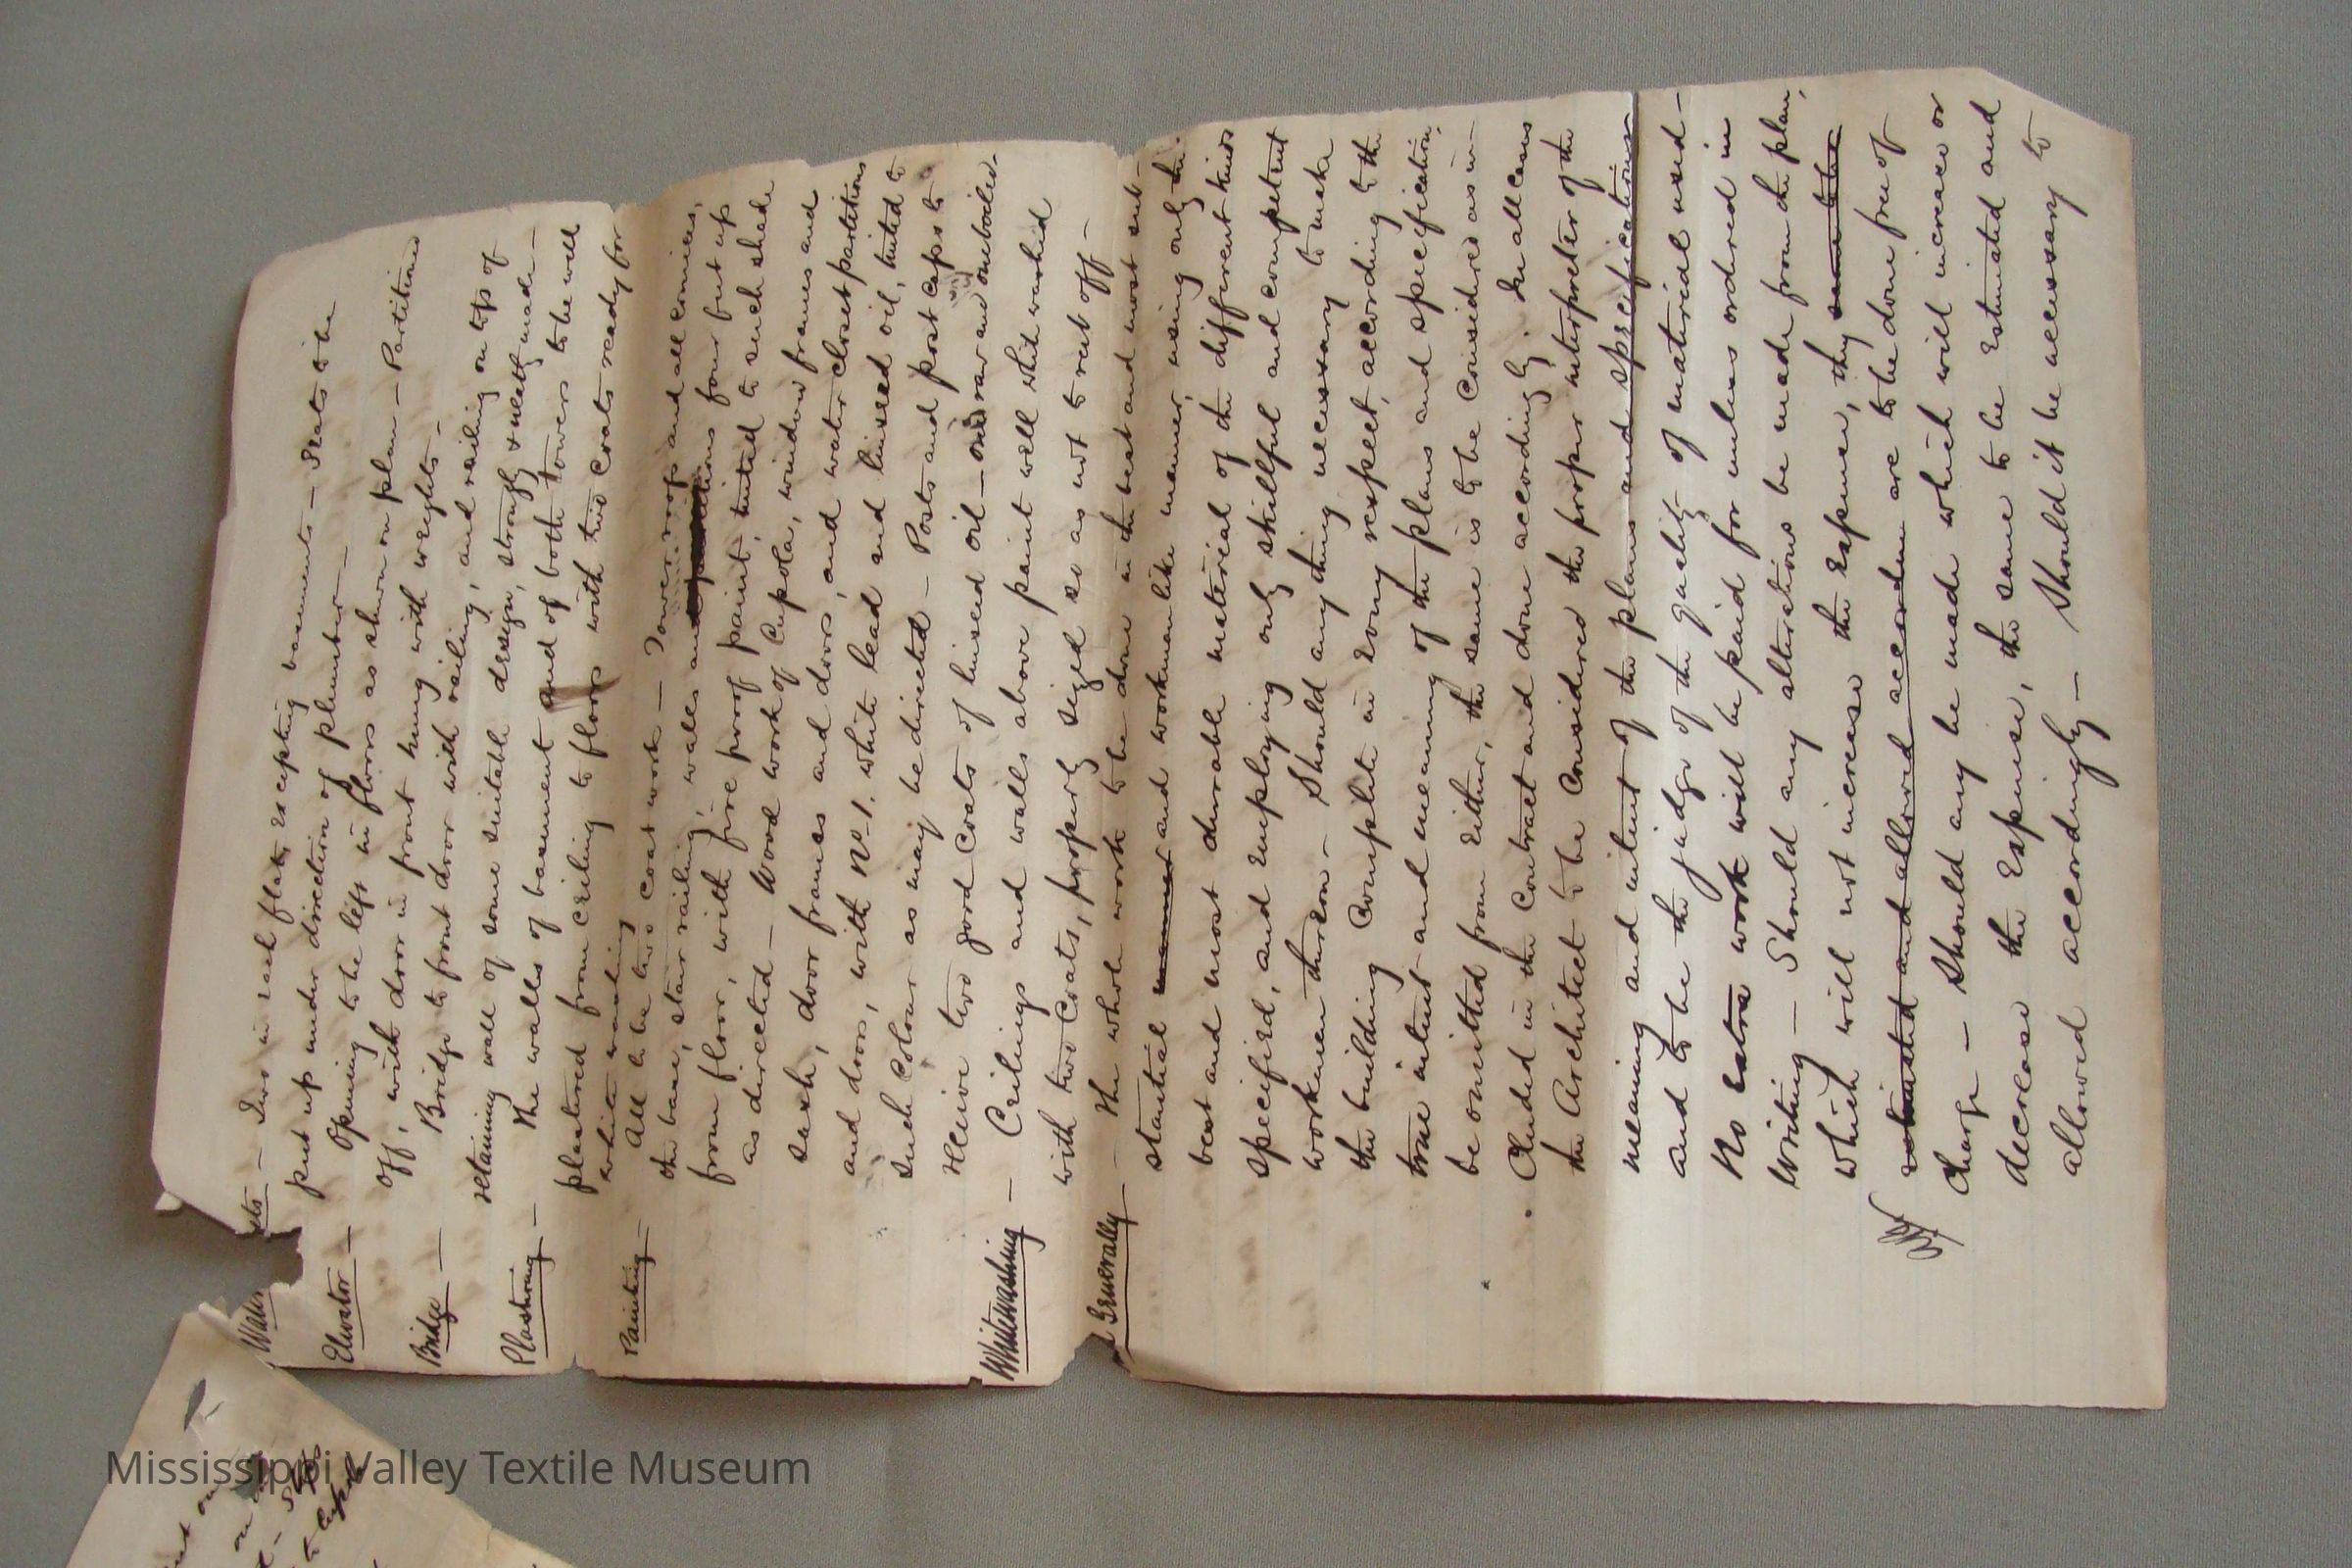 Water ... sts — Two in each flat, excepting basements — Seats to be
put up under direction of plumber —
Elevator — Opening to be left in floors as shown on plan — Partitioned
off, with door in front hung with weights —
Bridge — Bridge to front door with railing, and railing on top of
retaining wall of some suitable design, strongly & neatly made —
Plastering — The walls of basement and of both towers to be well
plastered from ceiling to floors with two coats ready for
white washing
Painting — All to be two coat work — Tower roofs and all cornices,
the base, stair railing, walls and partitions four feet up
from floor, with fire proof paint, tinted to such shade
as directed — Wood work of Cupola, window frames and
sash, door frames and doors, and water closet partitions
and doors, with No 1. white lead and linseed oil, tinted to
such colour as may be directed — Posts and post caps to
receive two good coats of linseed oil — one raw and one boiled —
Whitewashing — Ceilings and walls above paint well white washed
with two coats, properly sized so as not to rub off —
Generally — The whole work to be done in the best and most sub-
stantial manner and workmanlike manner, using only the
best and most durable material of the different kinds
specified, and employing only skillful and competent
workmen thereon — Should any thing necessary to make
the building complete in every respect, according to the
true intent and meaning of the plans and specification,
be omitted from either, the same is to be considered as in—
cluded in the contract and done accordingly. In all cases
the Architect to be considered the proper interpreter of the
meaning and intent of the plans and specifications
and to be the judge of the quality of material used —
No extra work will be paid for unless ordered in
writing — Should any alterations be made from the plan,
which will not increase the expense, they same to be
estimated and allowed accordin are to be done free of
charge — Should any be made which will increase or
decrease the expense, the same to be estimated and
allowed accordingly — Should it be necessary to
Mississippi Valley Textile Museum